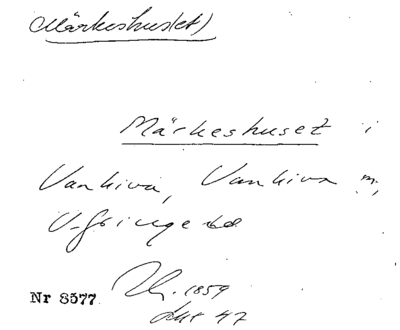 Märkeshus(et)
Märkeshuset i
Vankiva, Vankiva m,
V. Göinge hd
Nr 8577
1859
47